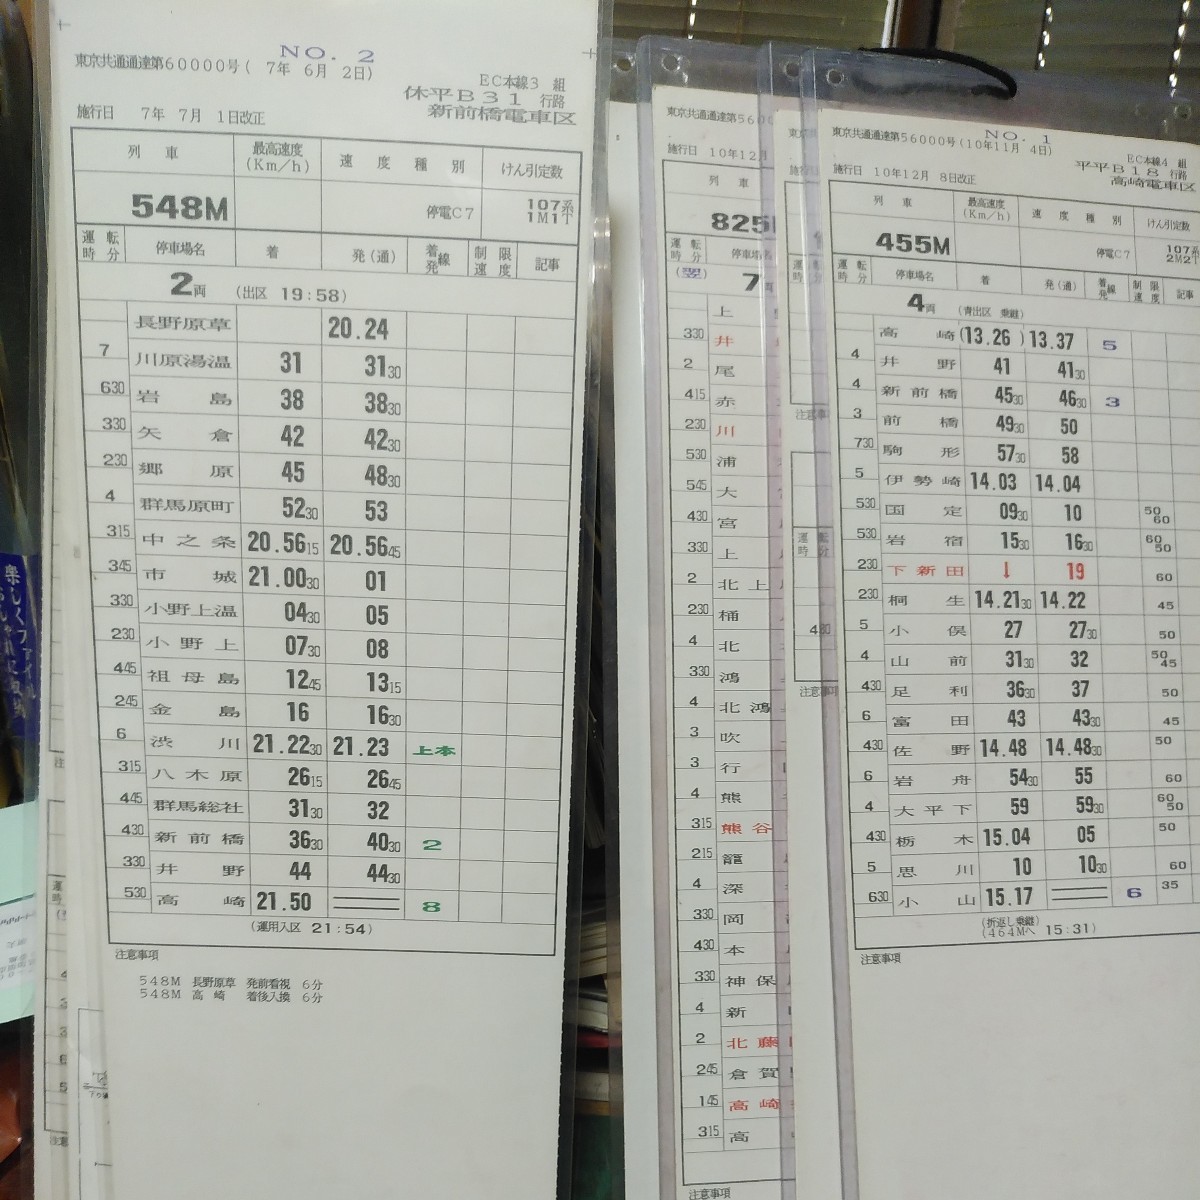 NO. 2
東京共通通達第60000号( 7年 6月 2日)
EC本線3 組
休平B31 行路
新前橋電車区
施行日 7年 7月 1日改正
列車 最高速度(Km/h) 速度種別 けん引定数
548M 停電C7 107系 1M1T
運転時分 停車場名 着 発(通) 着発線 制限速度 記事
2両 (出区 19:58)
長野原草 20.24
7
川原湯温 31 31 30
630
岩島 38 38 30
330
矢倉 42 42 30
230
郷原 45 48 30
4
群馬原町 52 30 53
315
中之条 20.56 15 20.56 45
345
市城 21.00 30 01
330
小野上温 04 30 05
230
小野上 07 30 08
445
祖母島 12 45 13 15
245
金島 16 16 30
6
渋川 21.22 30 21.23 上本
315
八木原 26 15 26 45
445
群馬総社 31 30 32
430
新前橋 36 30 40 30 2
330
井野 44 44 30
530
高崎 21.50 8
(運用入区 21:54)
注意事項
548M 長野原草 発前看視 6分
548M 高崎 着後入換 6分
東京共通通達第5600
施行日 10年12月
列車
825
運転時分 停車場名
(翌) 7
上
330
井
2
尾
415
赤
230
川
530
浦
545
大
430
宮
330
上
2
北上
230
桶
4
北
330
鴻
4
北鴻
3
吹
3
行
4
熊
315
熊谷
215
籠
4
深
330
岡
430
本
330
神保
4
新
2
北藤
245
倉賀
145
高崎
315
高
注意事項
NO. 1
東京共通通達第56000号(10年11月 4日)
EC本線4 組
平平B18 行路
高崎電車区
施行日 10年12月 8日改正
列車 最高速度(Km/h) 速度種別 けん引定数
455M 停電C7 107系 2M2T
運転時分 停車場名 着 発(通) 着発線 制限速度 記事
4両 (青出区 乗継)
高崎 (13.26) 13.37 5
4
井野 41 41 30
4
新前橋 45 30 46 30 3
3
前橋 49 30 50
730
駒形 57 30 58
5
伊勢崎 14.03 14.04
530
国定 09 30 10 50 60
530
岩宿 15 30 16 30 60 50
230
下新田 ↓ 19 60
230
桐生 14.21 30 14.22 45
5
小俣 27 27 30 50
4
山前 31 30 32 50 45
430
足利 36 30 37 50
6
富田 43 43 30 45
430
佐野 14.48 14.48 30 50
6
岩舟 54 30 55 60
4
大平下 59 59 30 60 50
430
栃木 15.04 05 50
5
思川 10 10 30 60
630
小山 15.17 6 35
(折返し乗継)
(464Mへ 15:31)
注意事項